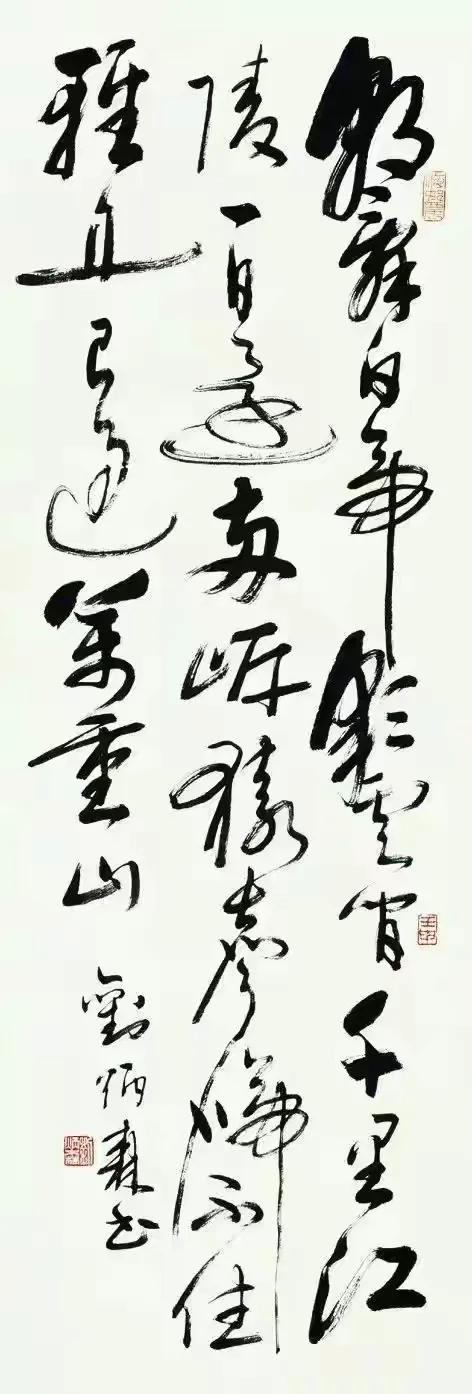 朝辭白帝彩雲間千里江
陵一日還兩岸猿聲啼不住
輕舟已過萬重山
劉炳森書